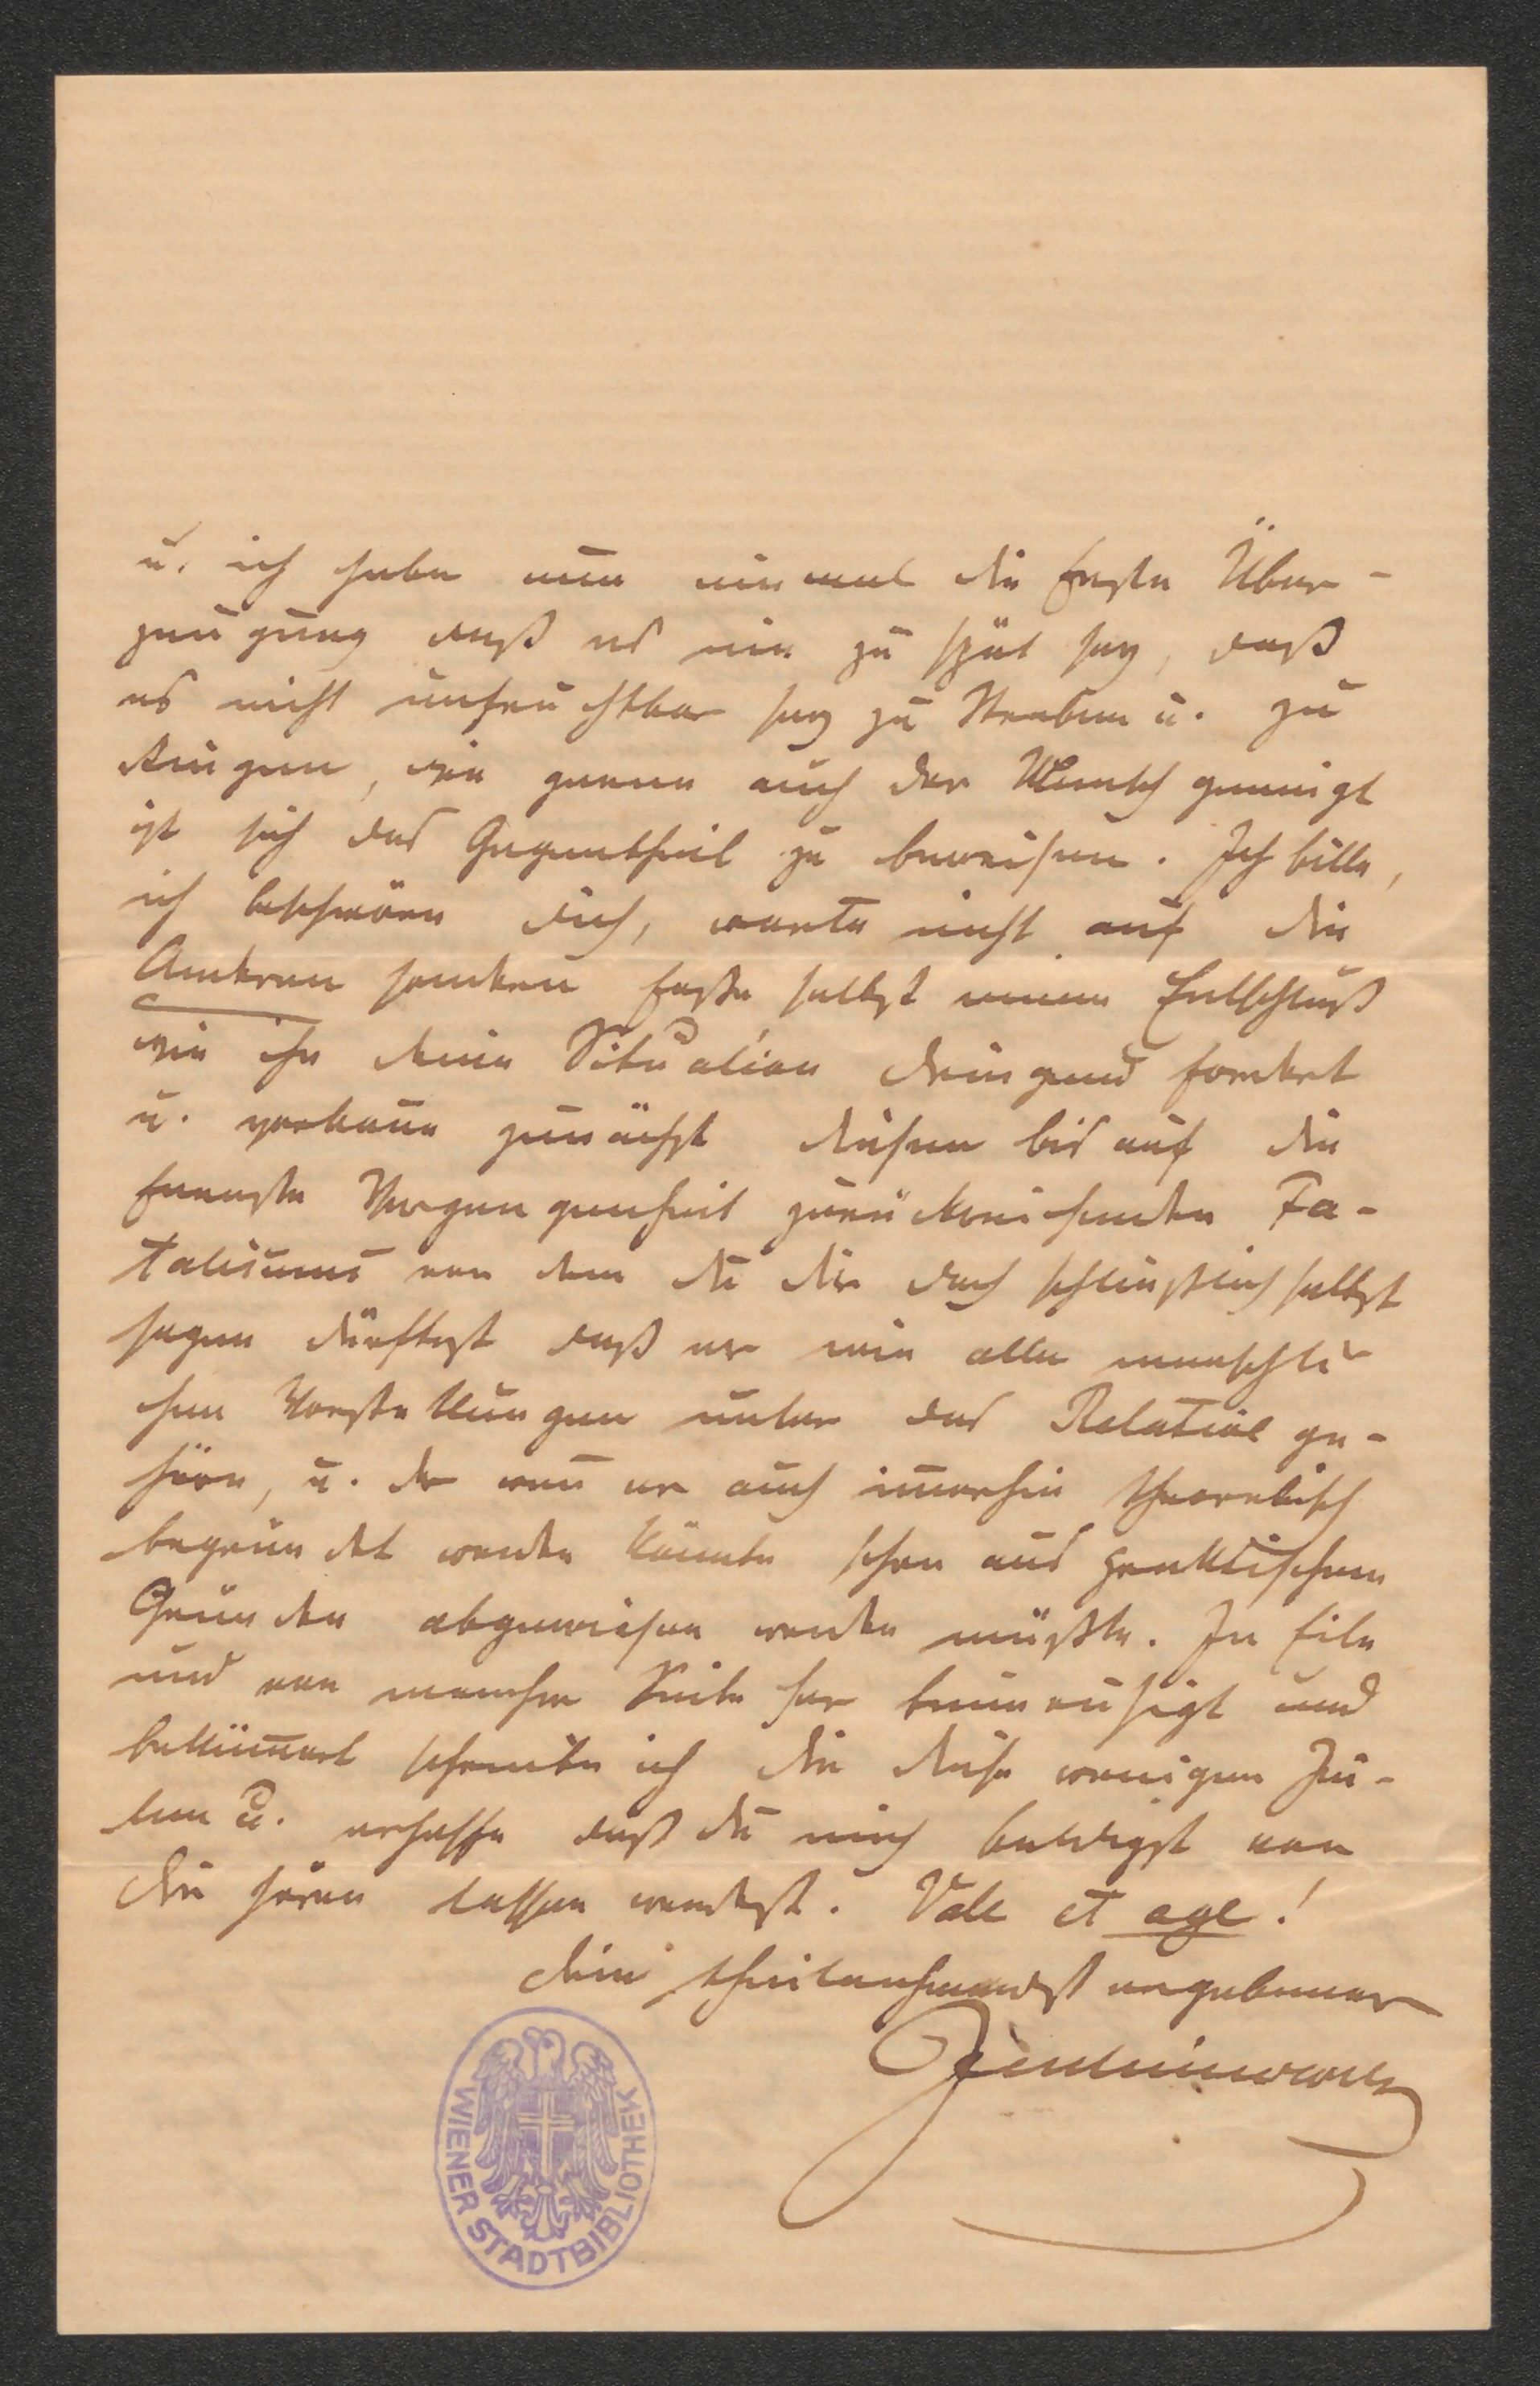 u. ich habe nun einmal die feste Über-
zeugung daß es nie zu spät sey, daß
es nicht unfruchtbar sey zu streben u. zu
ringen, wie gerne auch der Mensch geneigt
ist sich das Gegentheil zu beweisen. Ich bitte,
ich beschwöre dich, warte nicht auf die
Anderen sondern fasse selbst einen Entschluß
wie ihn deine Situation dringend fordert
u. verbanne zunächst diesen bis auf die
fernste Vergangenheit zurückreichenden Fa-
talismus von dem du dir doch schließlich selbst
sagen dürftest daß er wie alle menschli-
chen Vorstellungen unter das Relative ge-
höre, u. der wenn er auch immerhin theoretisch
begründet werden könnte schon aus praktischen
Gründen abgewiesen werden müßte. In Eile
und von mancher Seite her beunruhigt und
bekümmert schreibe ich dir diese wenigen Zei-
len u. erhoffe daß du mich baldigst von
dir hören lassen werdest. Vale et age!
dein theilnehmendst ergebener
WIENER STADTBIBLIOTHEK